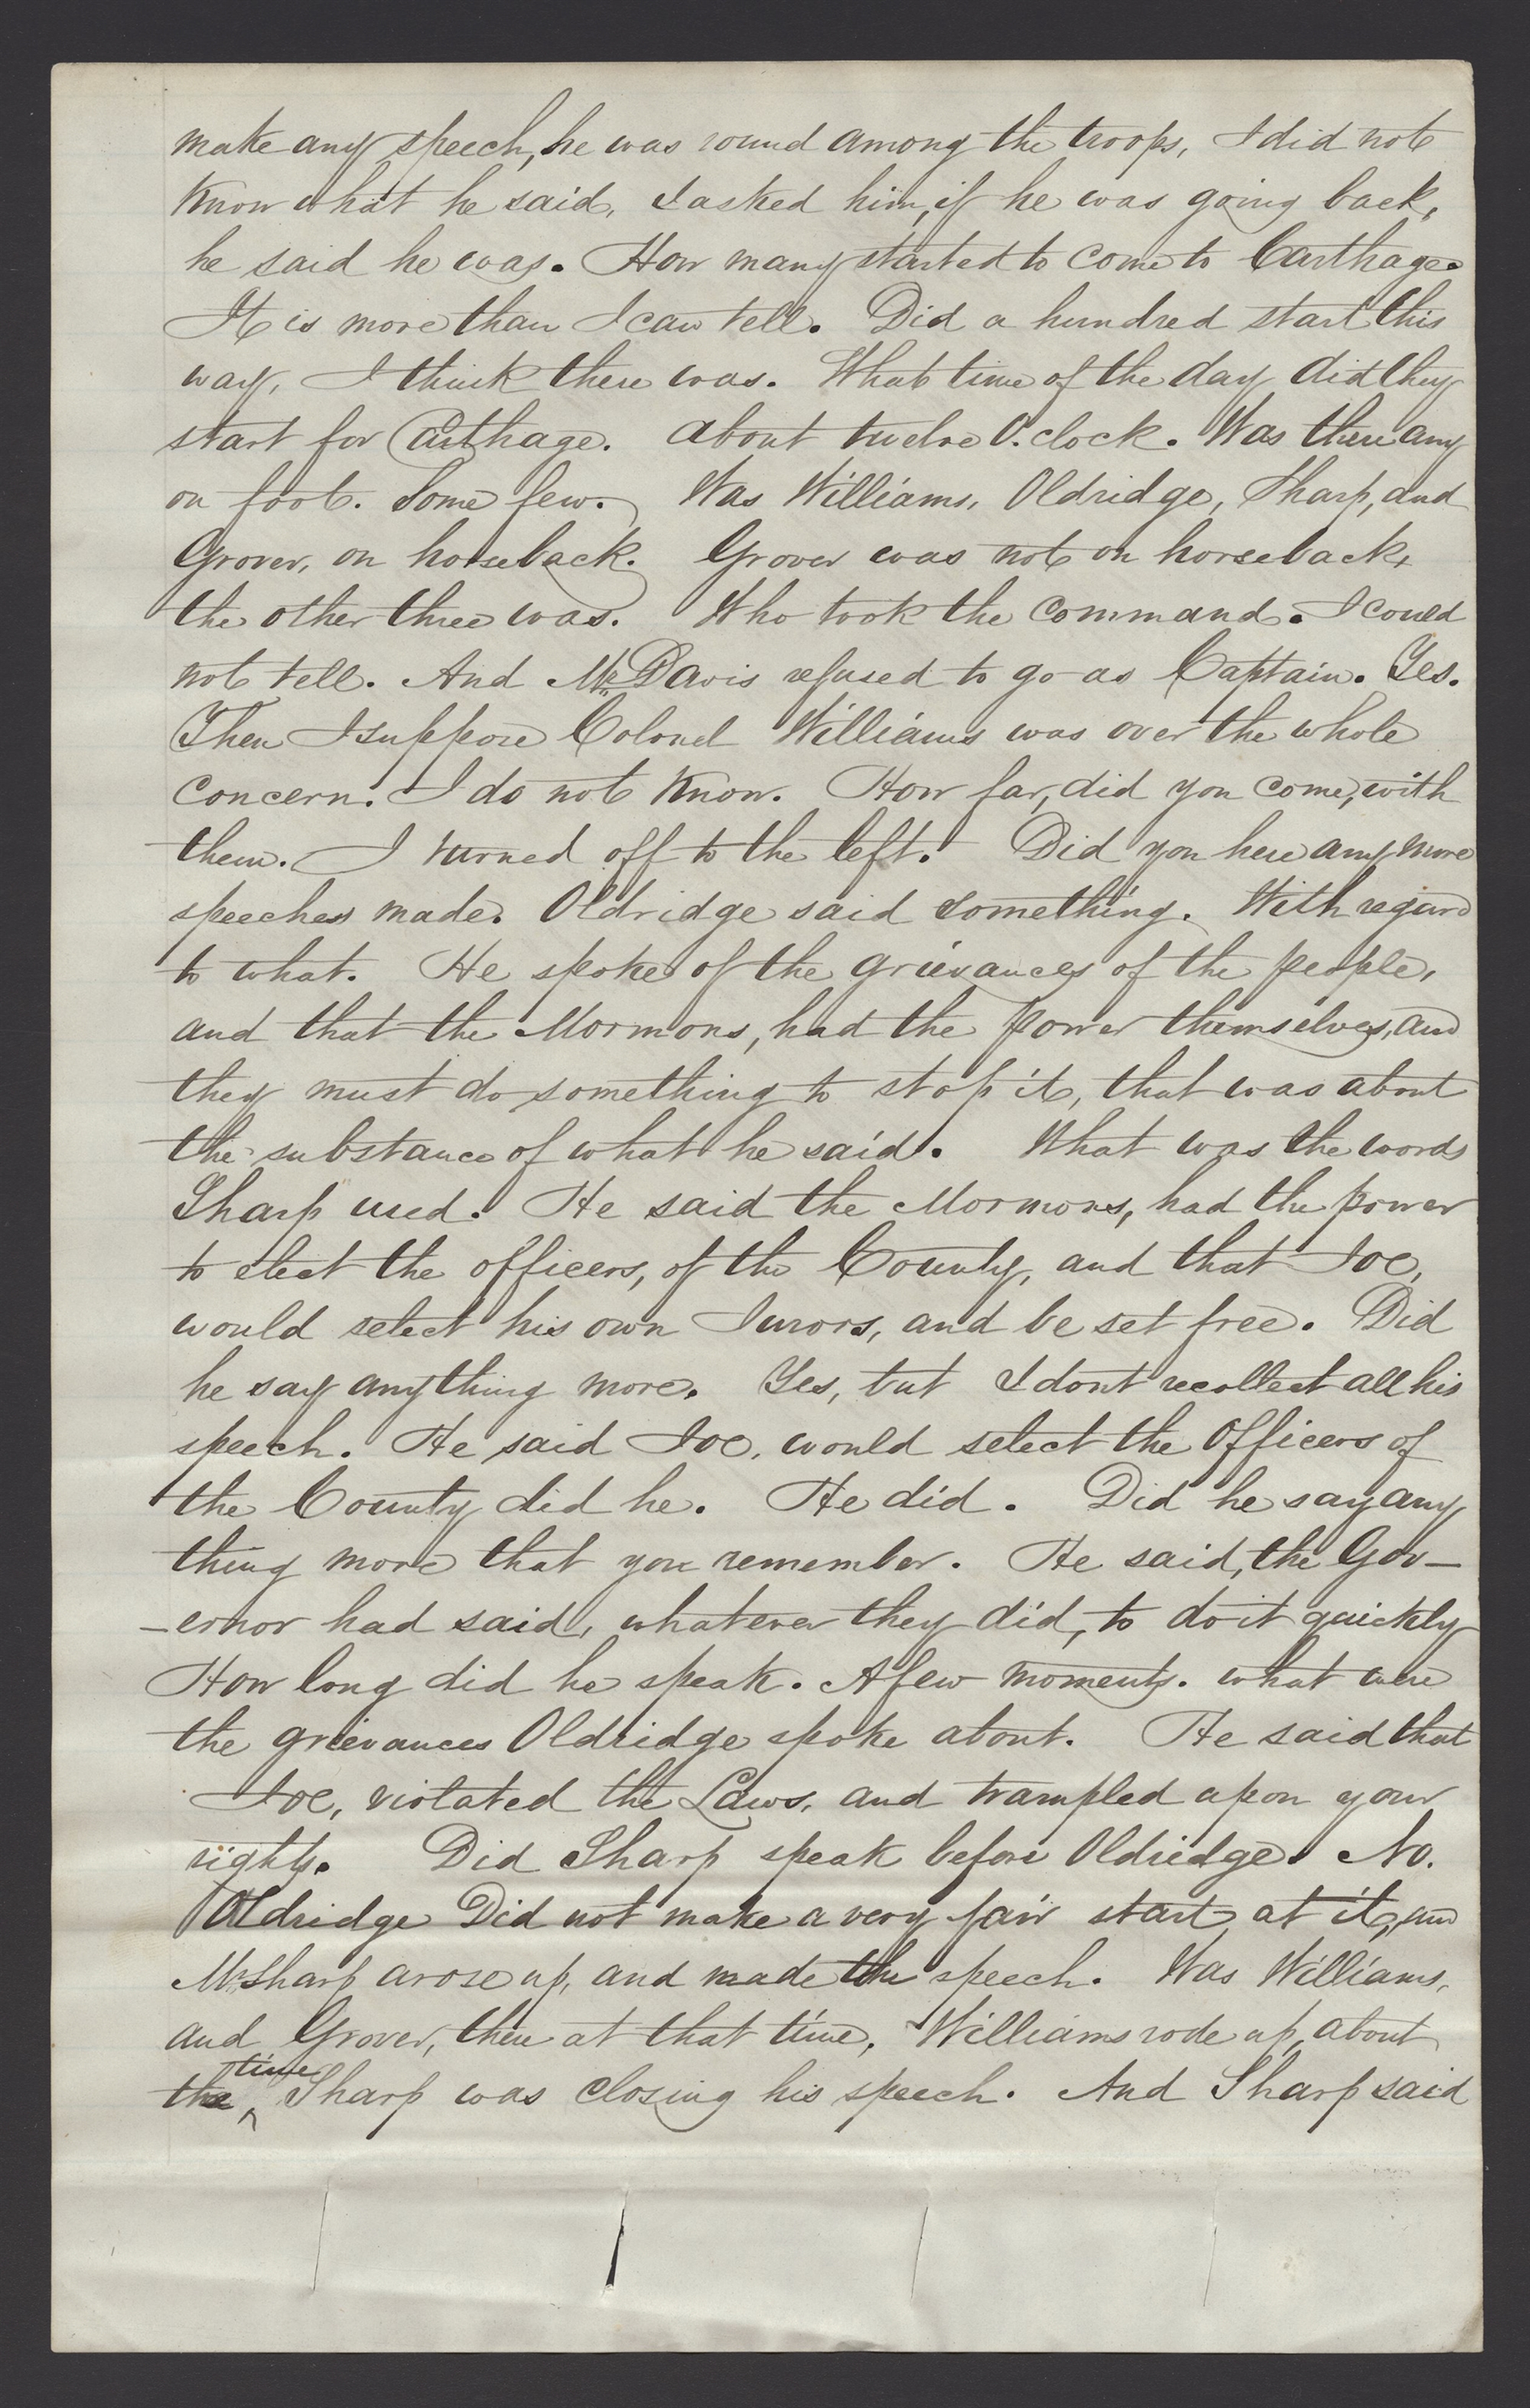 make any speech, he was round among the troops, I did not
Know what he said, I asked him, if he was going back,
he said he was. How many started to come to Carthage.
It is more than I can tell. Did a hundred start this
way, I think there was. What time of the day did they
start for Carthage. about twelve O.clock. Was there any
on foot. Some few. Was Williams, Oldridge, Sharp, and
Grover, on horseback. Grover was not on horseback,
the other three was. Who took the Command. I could
not tell. And Mr Davis refused to go as Captain. Yes.
Then I suppose Colonel Williams was over the whole
Concern. I do not Know. How far, did you come, with
them. I turned off to the left. Did you here any more
speeches made. Oldridge said something. With regard
to what. He spoke of the grievances of the people,
and that the Mormons, had the power themselves, and
they must do something to stop it, that was about
the substance of what he said. What was the words
Sharp used. He said the Mormons, had the power
to elect the officers, of the County, and that Joe,
would select his own Jurors, and be set free. Did
he say anything more. Yes, but I dont recollect all his
speech. He said Joe, would select the Officers of
the County did he. He did. Did he say any
thing more that you remember. He said, the Gov—
—ernor had said, whatever they did, to do it quickly
How long did he speak. A few moments. what were
the grievances Oldridge spoke about. He said that
Joe, violated the Laws, and trampled upon your
rights. Did Sharp speak before Oldridge. No.
Oldridge Did not make a very fair start at it, and
Mr Sharp arose up, and made the speech. Was Williams,
and Grover, there at that time, Williams rode up, about
the time Sharp was Closing his speech. And Sharp said